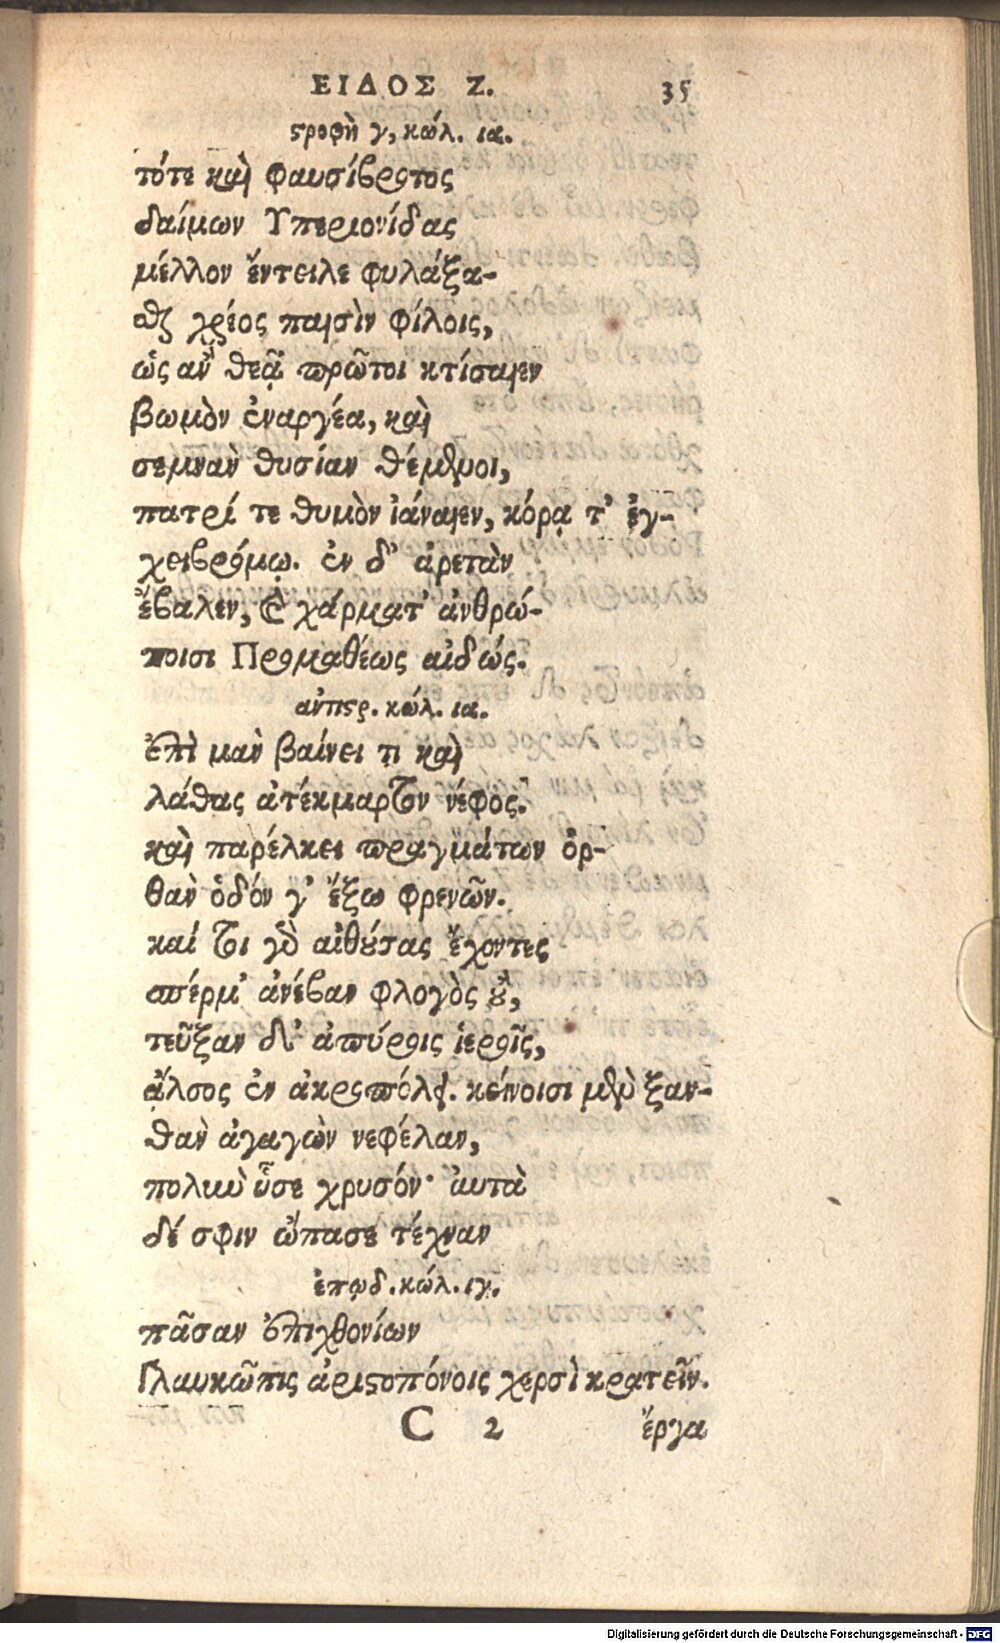 ΕΙΔΟΣ Ζ. 35
στροφὴ γ, κώλ. ια.
τότε καὶ φαυσίβροτος
δαίμων Ὑπεριονίδας
μέλλον ἔντειλε φυλάξα-
σθαι χρέος παισὶν φίλοις,
ὡς ἂν θεᾷ πρῶτοι κτίσαιεν
βωμὸν ἐναργέα, καὶ
σεμνὰν θυσίαν θέμενοι,
πατρί τε θυμὸν ἰάναιεν, κόρᾳ τ' ἐγ-
χειβρόμῳ. ἐν δ' ἀρετὰν
ἔβαλεν, καὶ χάρματ' ἀνθρώ-
ποισι Προμαθέως αἰδώς.
ἀντιστρ. κώλ. ια.
ἐπὶ μὰν βαίνει τι καὶ
λάθας ἀτέκμαρτον νέφος.
καὶ παρέλκει πραγμάτων ὀρ-
θὰν ὁδόν γ' ἔξω φρενῶν.
καί τοι γὰρ αἰθούσας ἔχοντες
σπέρμ' ἀνέβαν φλογὸς οὔ,
τεῦξαν δ' ἀπύροις ἱεροῖς,
ἄλσος ἐν ἀκροπόλει. κείνοισι μὲν ξαν-
θὰν ἀγαγὼν νεφέλαν,
πολὺν ὗσε χρυσόν· αὐτὰ
δέ σφιν ὤπασε τέχναν
ἐπῳδ. κώλ. ιγ.
πᾶσαν ἐπιχθονίων
Γλαυκῶπις ἀριστοπόνοις χερσὶ κρατεῖν.
C 2 ἔργα
Digitalisierung gefördert durch die Deutsche Forschungsgemeinschaft - DFG